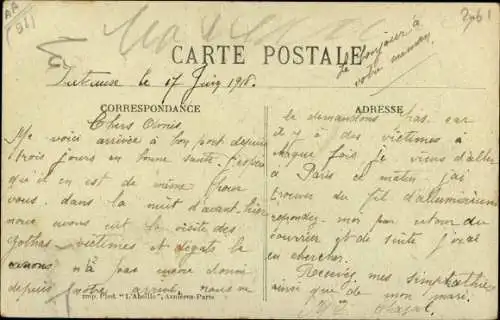 AA
981
2961
le bonjour à
votre maman
CARTE POSTALE
le 17 Juin 1918.
CORRESPONDANCE
ADRESSE
Chers Amis
Me voici arrivée à bon port depuis
trois jours en bonne santé. J'espère
qu'il en est de même pour
vous. dans la nuit d'avant hier
nous avons eut la visite des
gothas victimes et dégats
n'a pas encore donné
depuis notre arrivé, nous ne
le demandons pas. car
il y à des victimes à
chaque fois je viens d'aller
à Paris ce matin. j'ai
trouver du fil d'alluminium
repondez-moi par retour du
courrier et de suite j'irai
en chercher.
Recevez mes simpathies
ainsi que de mon mari.
Imp. Phot "L'Abeille", Asnières-Paris